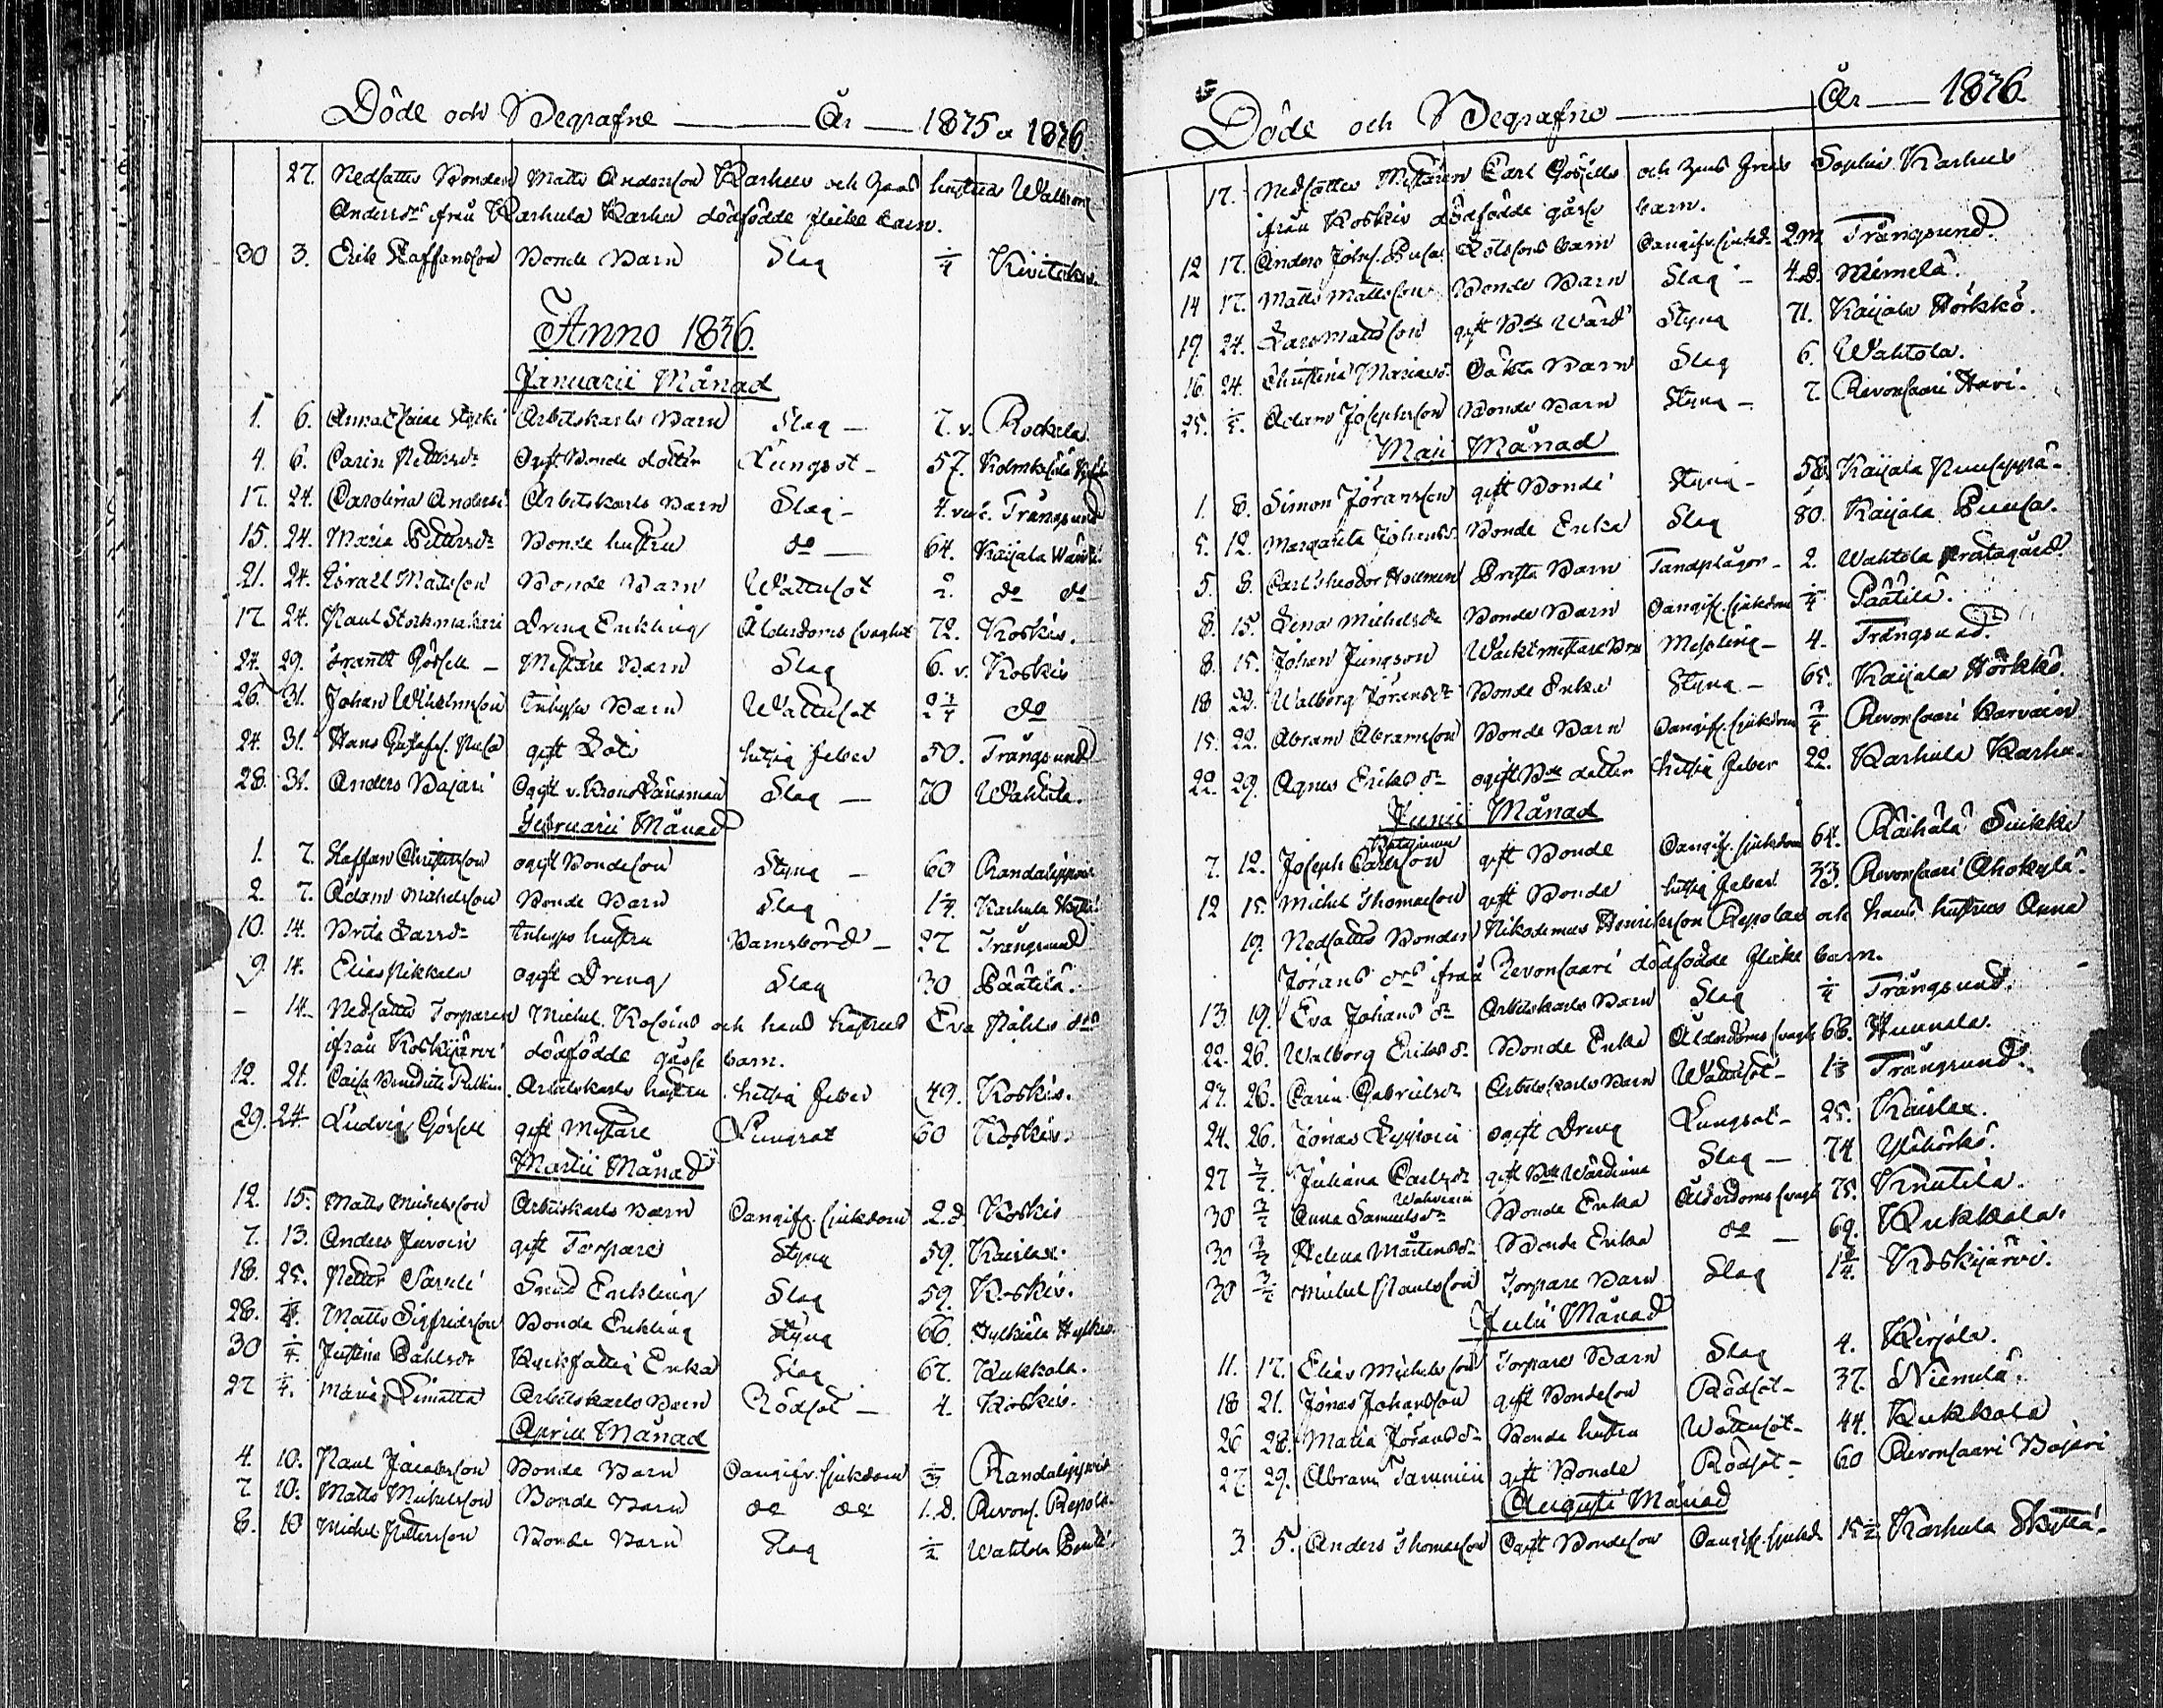 Döde och Begrafne — År — 1835 o 1836.
27. Nedsattes Bonden Matts Andersson Karhus och hans hustrus Walborg
Andersdrs ifrån Karhula Karhu dödfödde flicke barn.
30 3. Erik Staffansson Bonde Barn Slag 1/4
Anno 1836.
Januarii Månad
1. 6. Anna Arbetskarls Barn Slag — 7. v. Rockala.
4. 6. Carin Pettersdr Ogift Bonde dotter Lungsot — 57.
17. 24. Carolina Andersd. Arbetskarls Barn Slag — Trångsund
15. 24. Maria Pettersdr Bonde hustru do — 64. Kaijala
21. 24. Israel Matsson Bonde Barn Wattusot 2. do do
17. 24. Paul Dreng Enkling Ålderdoms svaghet 72. Koskis.
24. 29. Frantt Görsell — Mestare Barn Slag 6. v. Koskis
26. 31. Johan Wilhelmsson Inhyses Barn Wattusot 2 3/4 do
24. 31. Hans gift Lots hetsig feber 50. Trångsund
28. 31. Anders Bajari Ogift v. Krono Länsman Slag — 70 Wahtola.
Februarii Månad
1. 7. Staffan Christersson ogift Bondeson Styng — 60
2. 7. Adam Michelsson Bonde Barn Slag Karhula
10. 14. Brita Larsdr Inhyses hustru Barnsbörd — 27 Trångsund
9. 14. Elias Nikkala ogift Dreng Slag 30 Päätilä.
- 14. Nedsattes Torparen Michel Kosoins och hans hustrus Eva Påhls drs
ifrån Koskijärvi dödfödde gåsse barn.
12. 21. Caisa Benedicta Arbetskarls hustru hetsig feber 49. Koskis.
29. 24. Ludvig Görsell gift Mestare Lungsot 60 Koskis.
Martii Månad
12. 15. Matts Michelsson Arbetskarls Barn Oangifv. sjukdom 2. d. Koskis
7. 13. Anders Javoin gift Torpare Styng 59. Kaislax.
18. 25. Petter Enkling Slag 59. Koskis.
28. Matts Sigfridsson Bonde Enkling Styng 66. Hylkiälä
30 Justina Påhlsdr Enka Slag 67. Kukkola.
27 Maria Arbetskarls Barn Rödsot — 4. Koskis.
Aprill Månad
4. 10. Paul Jacobsson Bonde Barn Oangifv. sjukdom
7. 10. Matts Michelsson Bonde Barn do do 1. d. Revons. Repola.
8. 10 Michel Pettersson Bonde Barn Slag 1/2 Wahtola
Döde och Begrafne — År — 1836.
17. Nedsattes Mestaren Carl Görsells och hans frus Sophia Karhus
ifrån Koskis dödfödde gåsse barn.
12 17. Anders Johs. Lotsens barn Oangifv. sjukd. 2. m. Trångsund.
14 17. Matts Mattsson Bonde Barn Slag — 4. d. Niemelä.
19. 24. Lars Mattsson gift Bde Wärd Styng 71. Kaijala Hörkkö.
16 24. Christina Mariasdr. Oäkta Barn Slag 6. Wahtola.
25. Adam Josephsson Bonde Barn Styng — 7. Revonsaari
Maji Månad
1. 8. Simon Jöransson gift Bonde Styng — 58. Kaijala
5. 12. Margareta Johansd. Bonde Enka Slag 80. Kaijala
5. 8. Carl Theodor Prests Barn Tandplågor — 2. Wahtola Prästegård.
8. 15. Lena Michelsdr Bonde Barn Oangifv. sjukdom Päätilä.
8. 15. Johan Jungson Wacktmestare Barn Messling — 4. Trångsund.
18 22. Walborg Jöransdr Bonde Enka Styng — 65. Kaijala Hörkkö.
15. 22. Abram Abramsson Bonde Barn Oangifv. sjukdom 3/4 Revonsaari
22. 29. Agnes Eriksdr ogift Bde dotter hetsig feber 22. Karhula Karhu.
Junii Månad
7. 12. Joseph Carlsson gift Bonde Oangifv. sjukdom 64. Räihälä
12 15. Michel Thomasson gift Bonde hetsig feber 33. Revonsaari Ahokylä.
19. Nedsattes Bonden Nikodemus Henriksson Repolas och hans hustrus Anna
Jörans drs ifrån Revonsaari dödfödde flicke barn.
13. 19. Eva Johans dr Arbetskarls Barn Slag Trångsund.
22. 26. Walborg Eriksdr. Bonde Enka Ålderdoms svagh. 68. Hunnala.
23. 26. Carin Gabrielsdr Arbetskarls Barn Wattusot — Trångsund.
24. 26. Jonas ogift Dreng Lungsot — 25. Kaislax.
27 Juliana Carlsdr gift Bde Wärdinna Slag — 74
30 Anna Samuelsdr Bonde Enka Ålderdoms svagh. 75. Knutila.
30 Helena Mårtensdr. Bonde Enka do — 69. Kukkola.
30 Michel Paulsson Torpare Barn Slag Koskijärvi.
Julii Månad
11. 17. Elias Michelsson Torpare Barn Slag 4. Kirjola.
18 21. Jonas Johansson gift Bondeson Rödsot — 37. Niemelä.
26 28. Maria Jöransdr Bonde hustru Wattusot — 44. Kukkola
27. 29. Abram Tammin gift Bonde Rödsot — 60 Revonsaari Bajari
Augusti Månad
3. 5. Anders Thomasson Ogift Bondeson Oangifv. sjukd. 15 1/2 Karhula Skyttä.